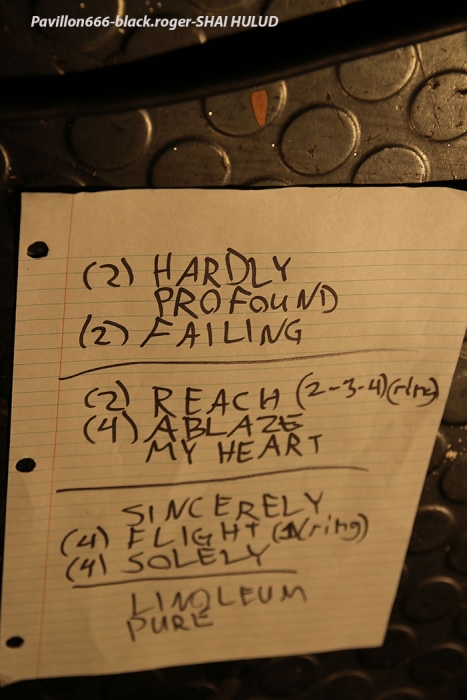 Pavillon666-black.roger-SHAI HULUD
(2) HARDLY
PROFOUND
(2) FAILING
(2) REACH (2-3-4)(ring)
(4) ABLAZE
MY HEART
SINCERELY
(4) FLIGHT (1)(ring)
(4) SOLELY
LINOLEUM
PURE